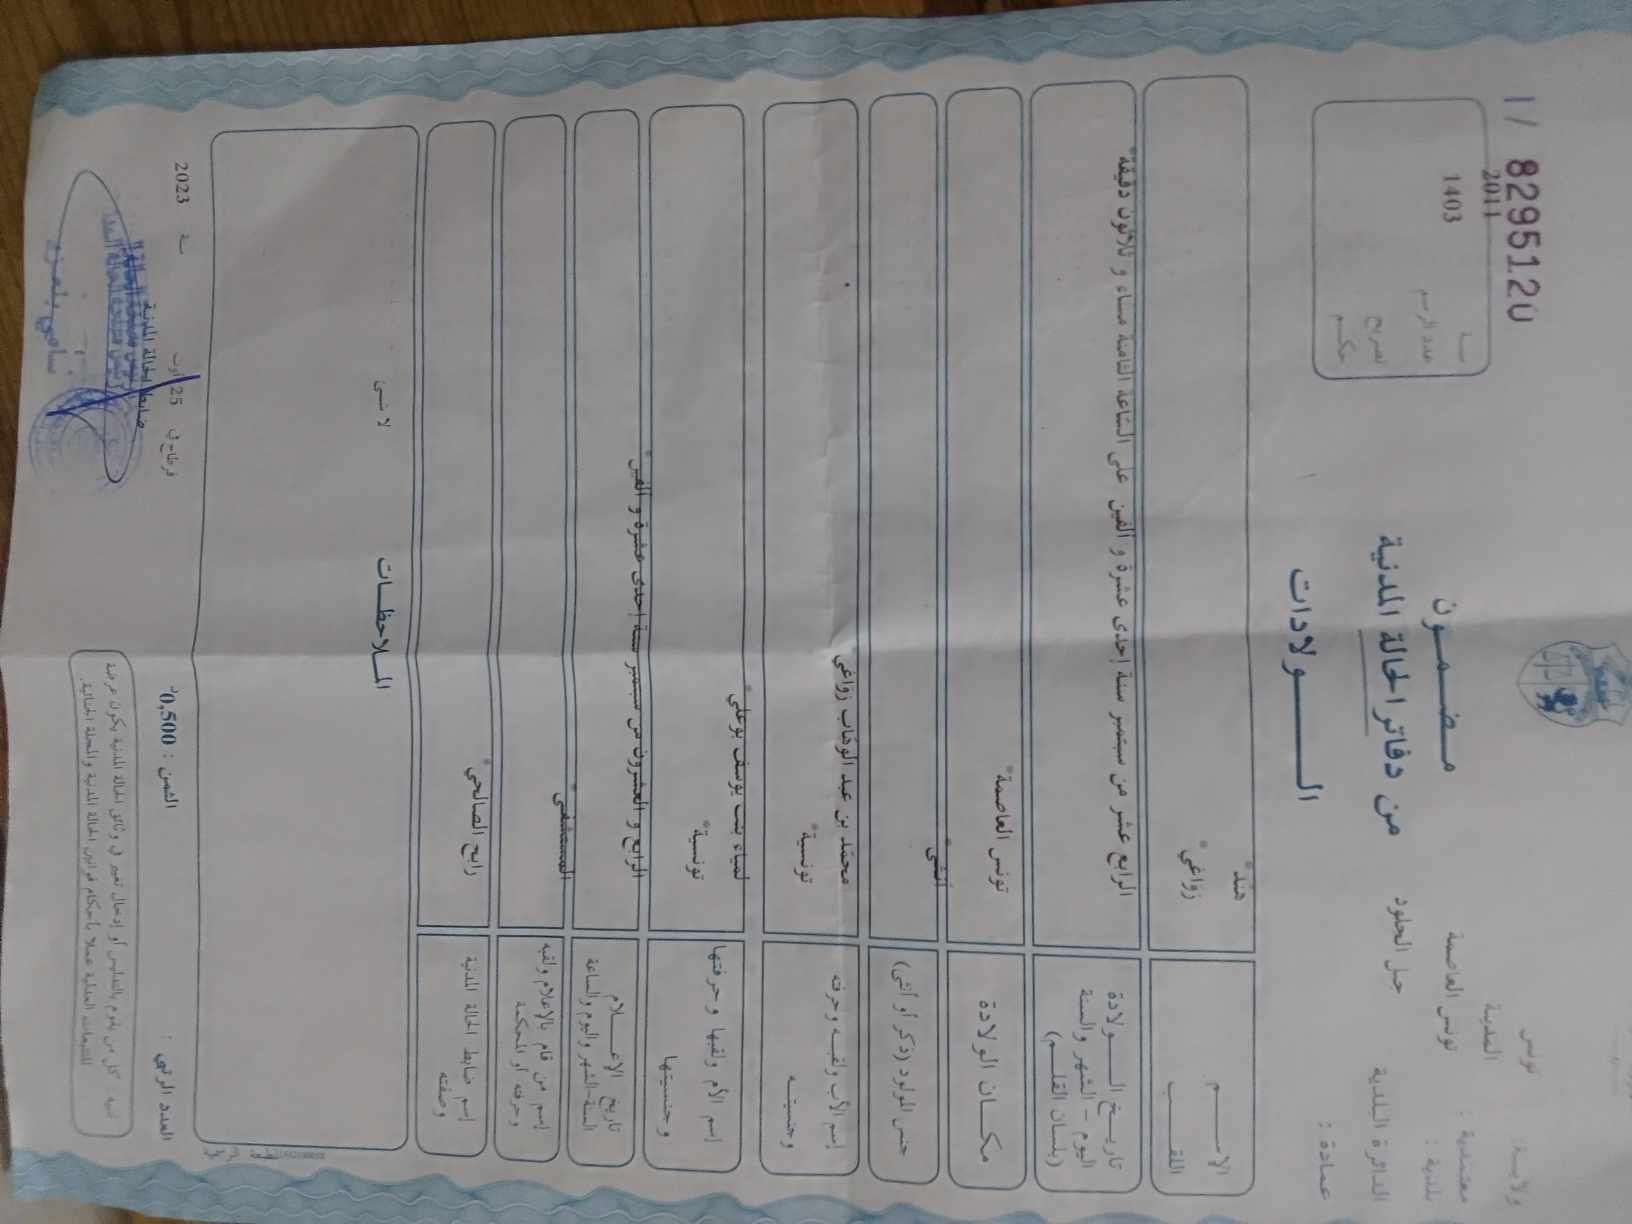 11/ 8295120
ولايـة: تونس
معتمدية : المدينة
بلدية : تونس العاصمة
الدائرة البلدية جبل الجلود
عمادة :
مـضـمـون
من دفاتر الحالة المدنية
الـــولادات
سنة 2011
عدد الرسم 1403
تصريح
حكم
الإسـم هند*
اللقـب زواغي*
تاريـخ الـولادة
اليوم - الشهر والسنة
(بلسان القلـم)
الرابع عشر من سبتمبر سنة إحدى عشرة و الفين على الساعة الثامنة مساء و ثلاثون دقيقة*
مكـان الولادة تونس العاصمة*
جنس المولود (ذكر أو أنثى) أنثى*
إسم الأب ولقبـه وحرفته
وجنسيتـه
محمد بن عبد الوهاب زواغي*
تونسية*
إسم الأم ولقبها وحرفتها
وجنسيتها
لمياء بنت يوسف بوعلي*
تونسية*
تاريخ الإعـلام
السنة-الشهر واليوم والساعة
الرابع و العشرون من سبتمبر سنة إحدى عشرة و الفين*
إسم من قام بالإعلام ولقبه
وحرفته أو المحكمة
المستشفى*
إسم ضابط الحالة المدنية
وصفته
رابح الصالحي*
المـلاحظـات
لا شـىء
العدد الرتبي :
الثمن : 0,500د
قرطاج في 25 أوت سنة 2023
ضابط الحالة المدنية
سامي بلعزيز
تنبيه كل من يقوم بالتدليس أو إدخال تغيير في وثائق الحالة المدنية يكون عرضة
للتتبعات العدلية عملا بأحكام قوانين الحالة المدنية والمجلة الجنائية.